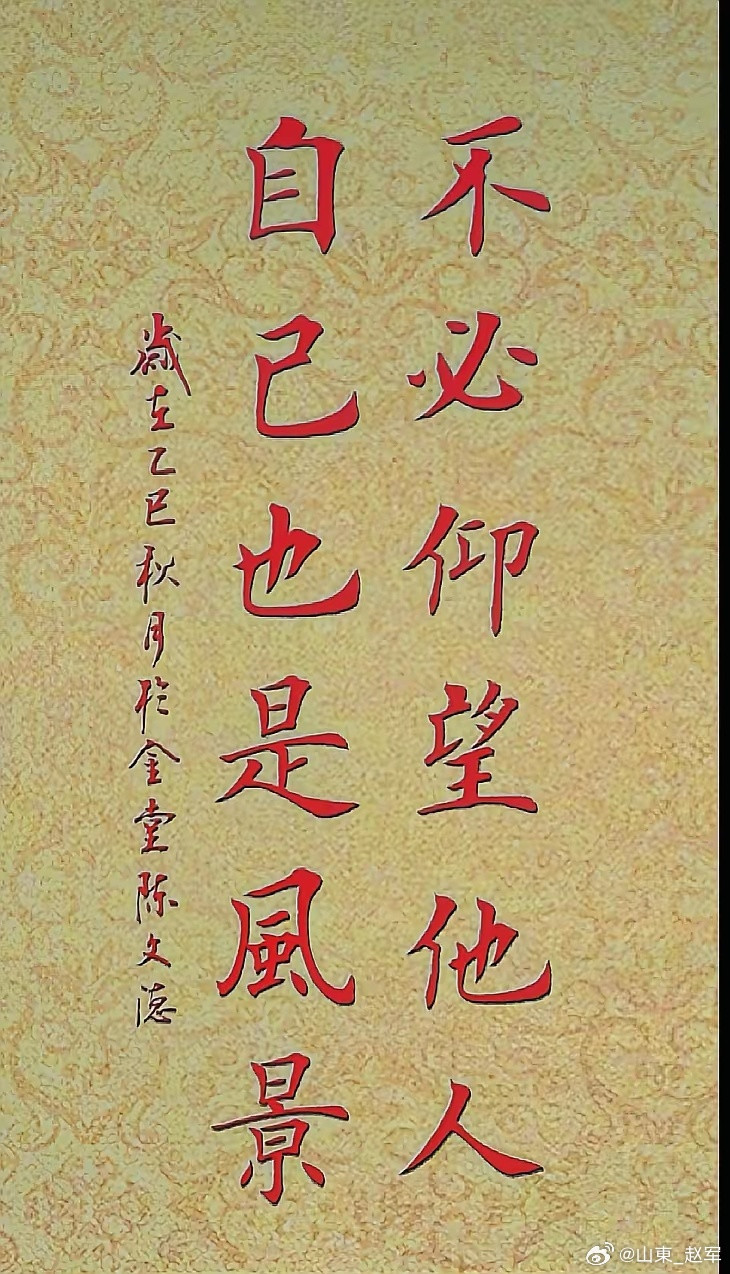 不必仰望他人
自己也是風景
歲在乙巳秋月於金堂陈文德
@山東_赵军